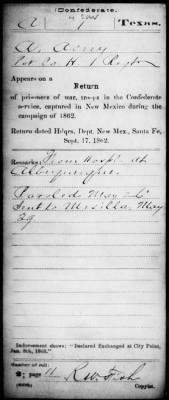 (Confederate.)
A 4 Cav Texas.
A. Acrey
Pvt Co. H 1 Regt
Appears on a
Return
of prisoners of war, troops in the Confederate
service, captured in New Mexico during the
campaign of 1862.
Return dated Hdqrs. Dept. New Mex., Santa Fe,
Sept. 17, 1862.
Remarks: From Hosp. at
Albuquerque.
Paroled May 26
Sent to Mesilla, May
29
Indorsement shows: "Declared Exchanged at City Point,
Jan. 8th, 1863."
Number of roll:
2; page 4 R. W. Fish
Copyist.